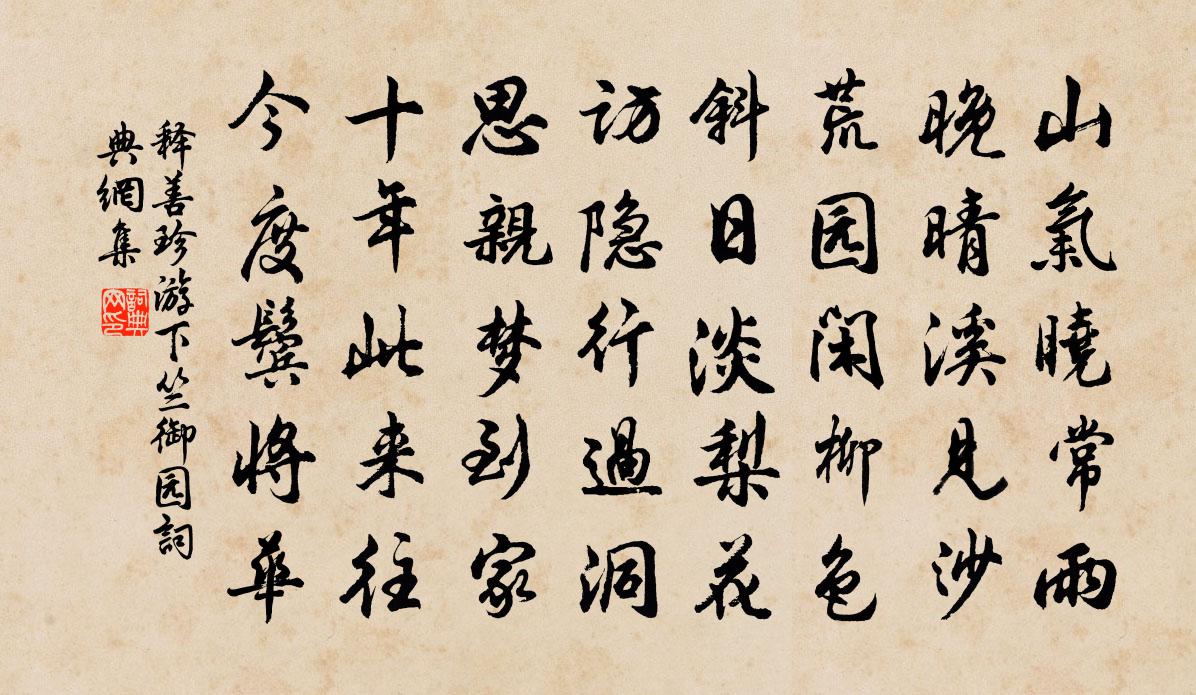 山氣曉常雨
晚晴溪見沙
荒园閑柳色
斜日淡梨花
访隐行過洞
思親梦到家
十年此来往
今度鬓将華
释善珍游下竺御园詞
典網集
詞典
网印